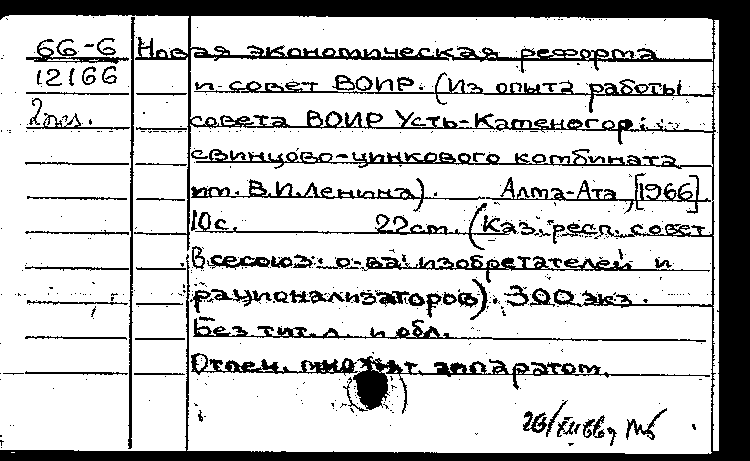 66-6 Новая экономическая реформа
12166 и совет ВОИР. (Из опыта работы
2 экз. совета ВОИР Усть-Каменогор.
свинцово-цинкового комбината
им. В.И.Ленина). Алма-Ата, [1966].
10с. 22см. (Каз. респ. совет
Всесоюз. о-ва изобретателей и
рационализаторов). 300 экз.
Без тит. л. и обл.
Отпеч. множит. аппаратом.